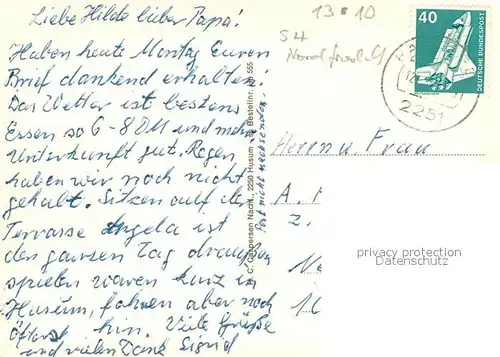 Liebe Hilde lieber Papa!
Haben heute Montag Euren
Brief dankend erhalten!
Das Wetter ist bestens
Essen so 6-8 DM und mehr
Unterkunft gut. Regen
haben wir noch nicht
gehabt. Sitzen auf der
Terrasse Angela ist
den ganzen Tag draußen
spielen waren kurz in
Husum, fahren aber noch
öfters hin. Viele Grüße
und vielen Dank Sigrid
Post nicht nachsenden
Nachf., 2250 Husum
Bestellnr. 555
13 10
S4
40
DEUTSCHE BUNDESPOST
2251
Herrn u. Frau
privacy protection
Datenschutz